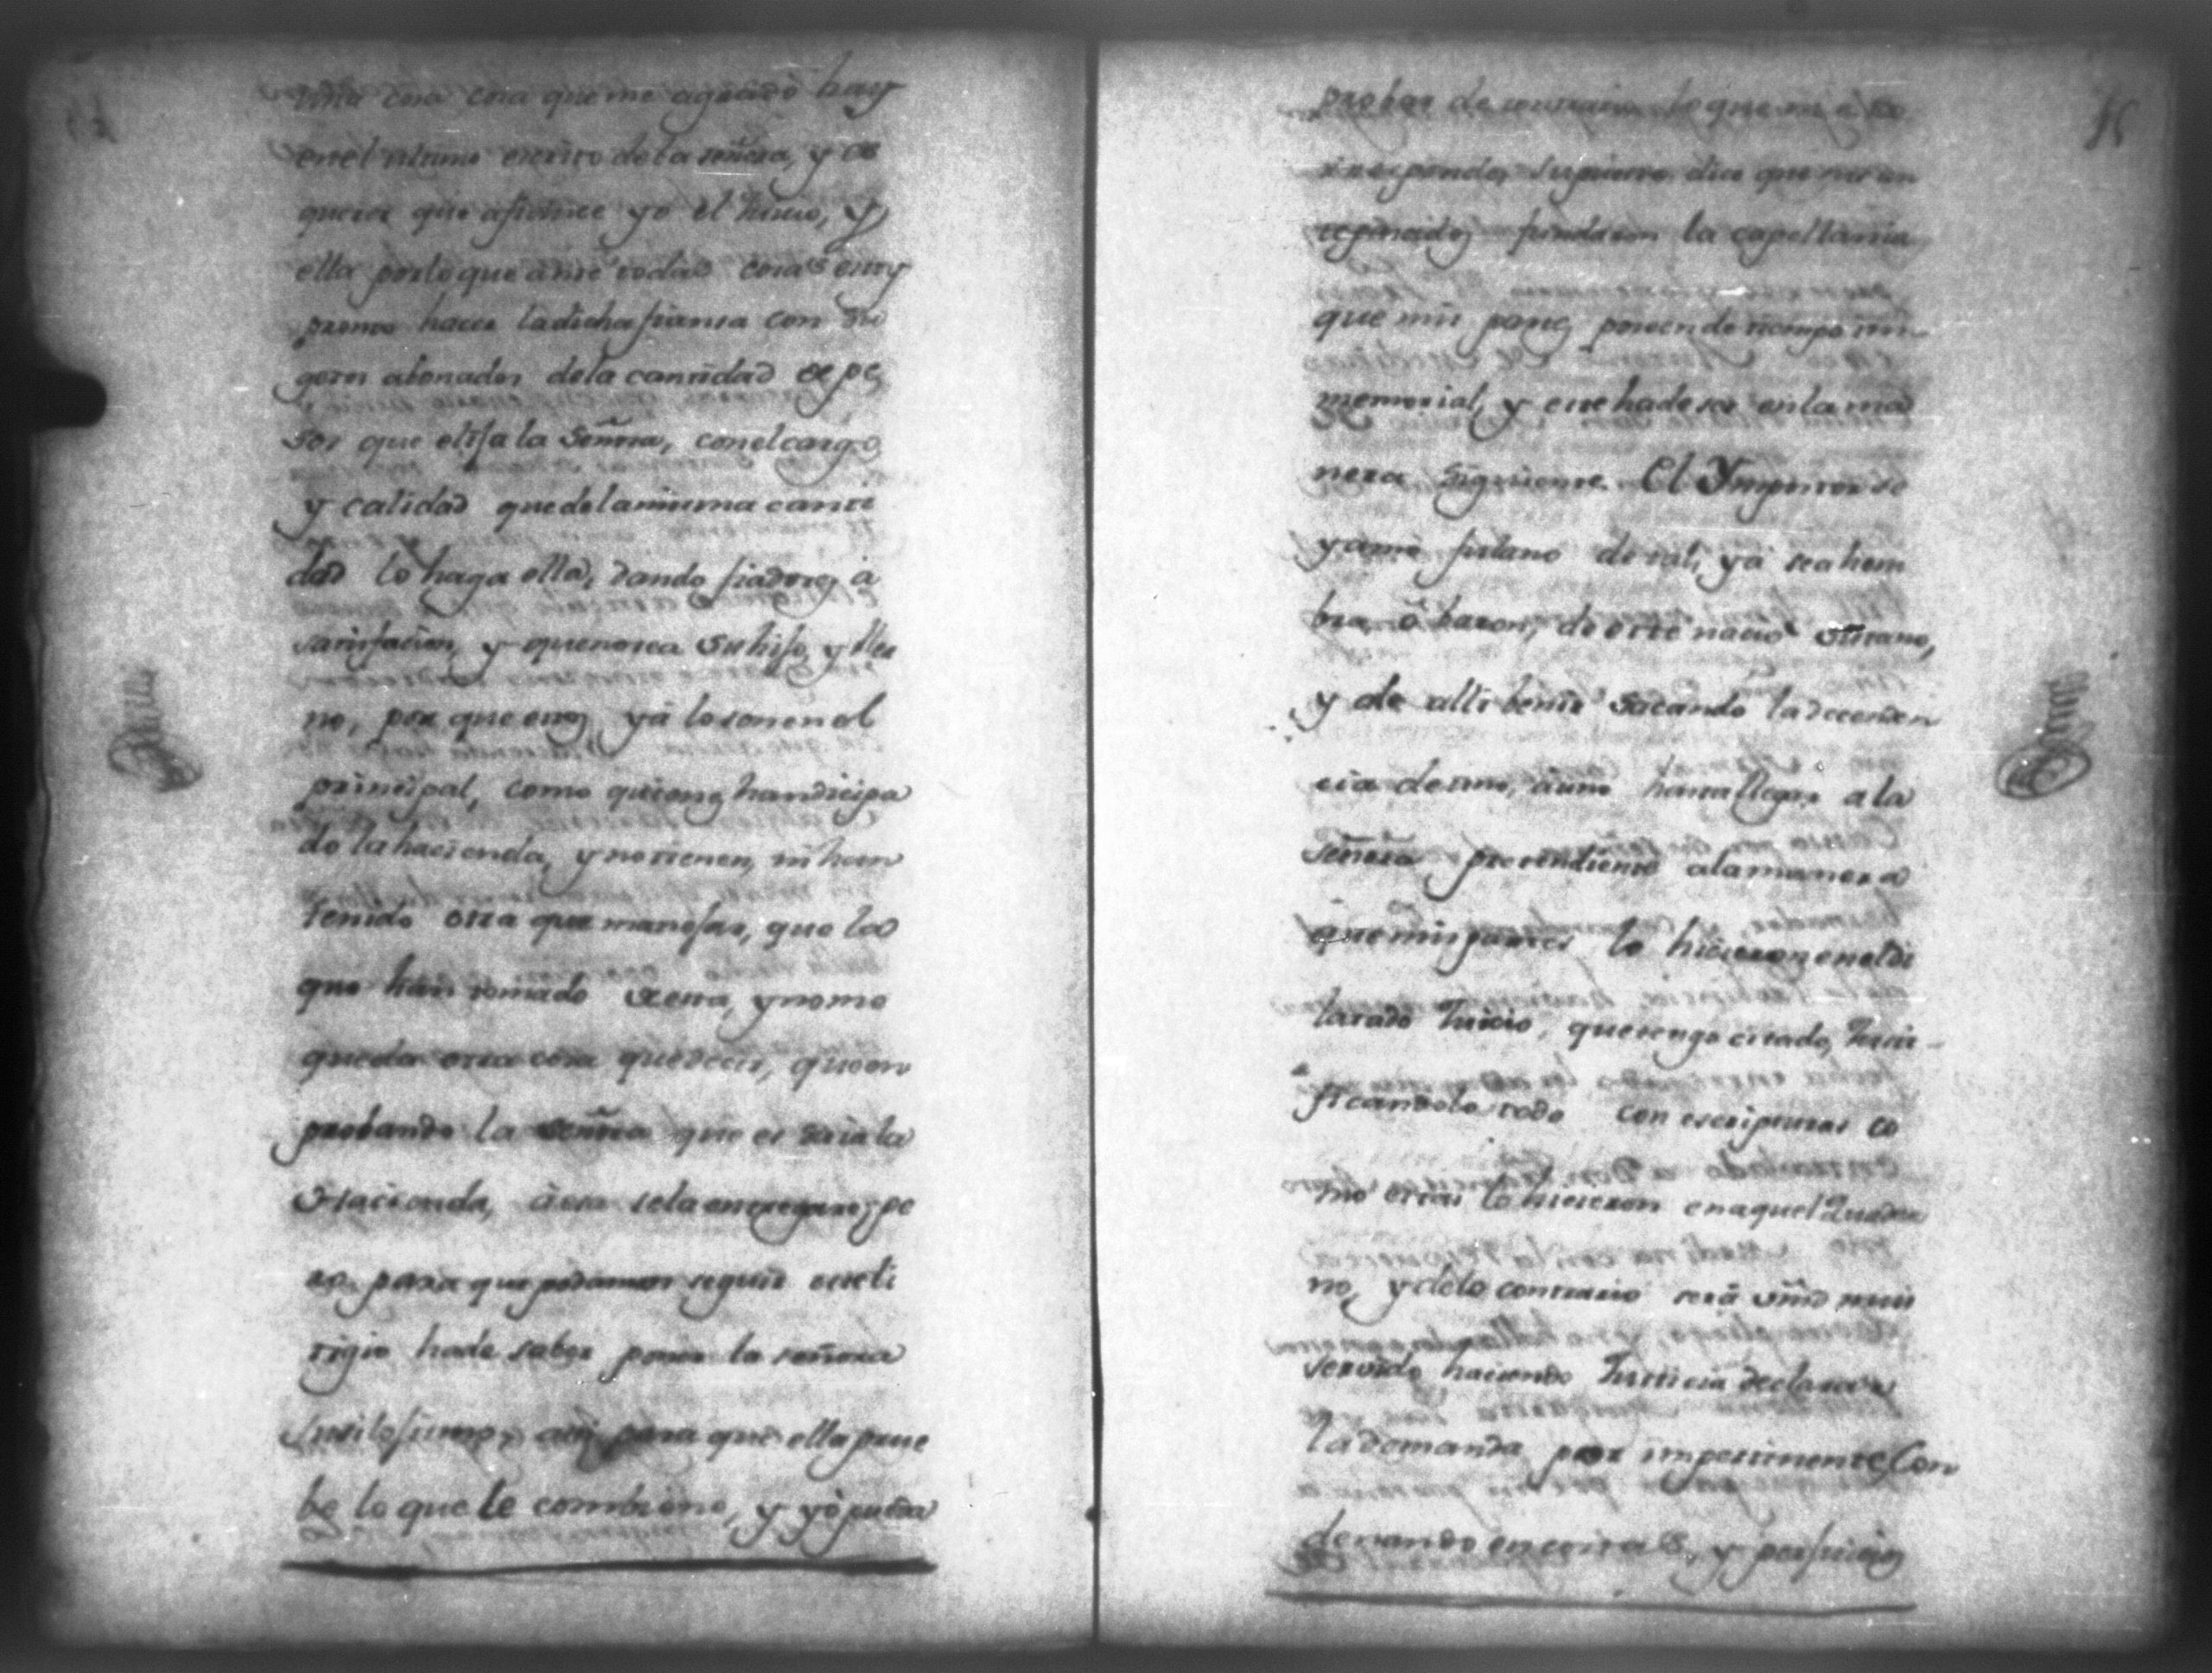 una cosa cosa que me agrado hay
en el ultimo escrito de la señora, y es
querer que afianse yo el Juicio, y
ella por lo que ami todas cosas estoy
promto hacer la dicha fiansa con su
getos abonados de la cantidad de pe
sos que elija la Señora, con el cargo
y calidad que de la misma canti
dad lo haga ella, dando fiadores a
satisfacion, y que no sea su hijo, y Yer
no, por que estos ya lo son en el
principal, como quienes han dicipa
do la hacienda, y no tienen, ni han
tenido otra que manejar, que la
que han tomado agena, y no me
queda otra cosa que decir, que en
probando la Señora que es suia la
Hacienda, aora se la entregare, pe
ro para que podamos seguir este li
tigio hade saber poner la señora
su silojismo, asi para que ella prue
be lo que le combiene, y yo pueda
probar de contrario lo que me co
rresponda, supuesto dice que sus an
tepasados fundaron la capellania
que mis partes poseen de tiempo im-
memorial, y este hade ser en la ma
nera siguiente. El Ympositor se
yamo fulano de tal, ya sea hem
bra, ó baron, de este nacio sutano,
y de alli benir sacando la decenden
cia de uno, á uno hasta llegar a la
Señora pretendiente a la manera
que mis partes lo hicieron en el di
latado Juicio, que tengo citado, Justi-
ficandolo todo con escripturas co
mo estas lo hicieron en aquel Quader
no, y de lo contrario será Vmd mui
servido haciendo Justicia declarar
la demanda por impertinente Con
denando en costas, y perjuicios